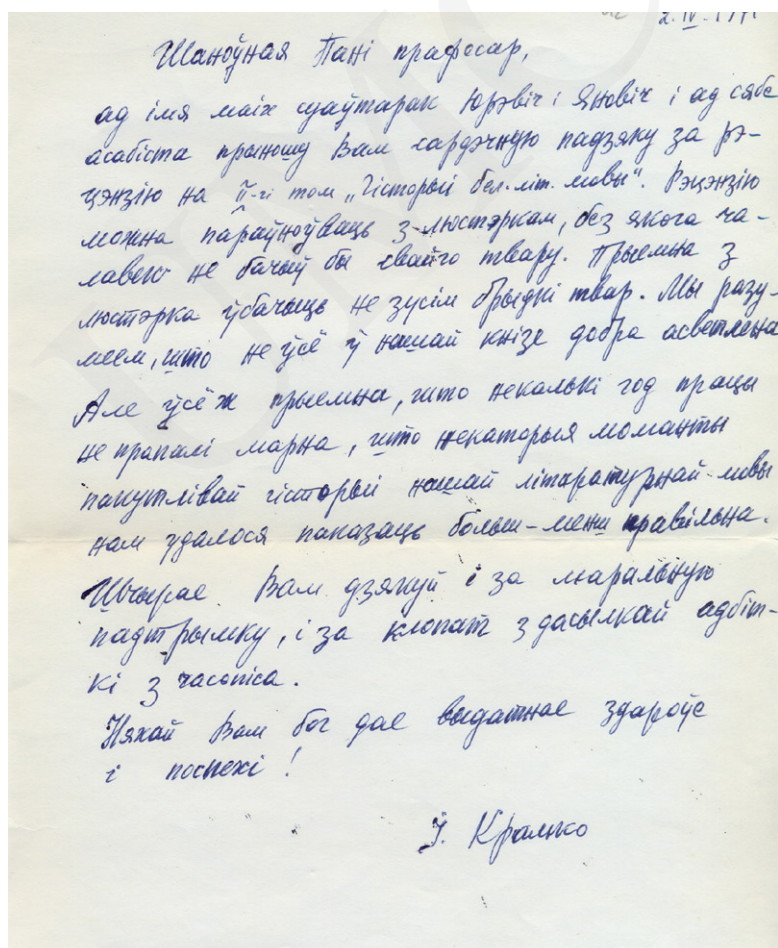 2.IV.1971
Шаноўная Пані прафесар,
ад імя маіх суаўтарак Юрэвіч і Яновіч і ад сябе
асабіста прыношу Вам сардэчную падзяку за рэ-
цэнзію на II-гі том „Гісторыі бел. літ. мовы". Рэцэнзію
можна параўноўваць з люстэркам, без якога ча-
лавек не бачыў бы свайго твару. Прыемна з
люстэрка ўбачыць не зусім брыдкі твар. Мы разу-
меем, што не ўсё ў нашай кнізе добра асветлена
Але ўсё ж прыемна, што некалькі год працы
не прапалі марна, што некаторыя моманты
пакутлівай гісторыі нашай літаратурнай мовы
нам удалося паказаць больш-менш правільна.
Шчырае Вам дзякуй і за маральную
падтрымку, і за клопат з дасылкай адбіт-
кі з часопіса.
Няхай Вам бог дае выдатнае здароўе
і поспехі!
І. Крамко